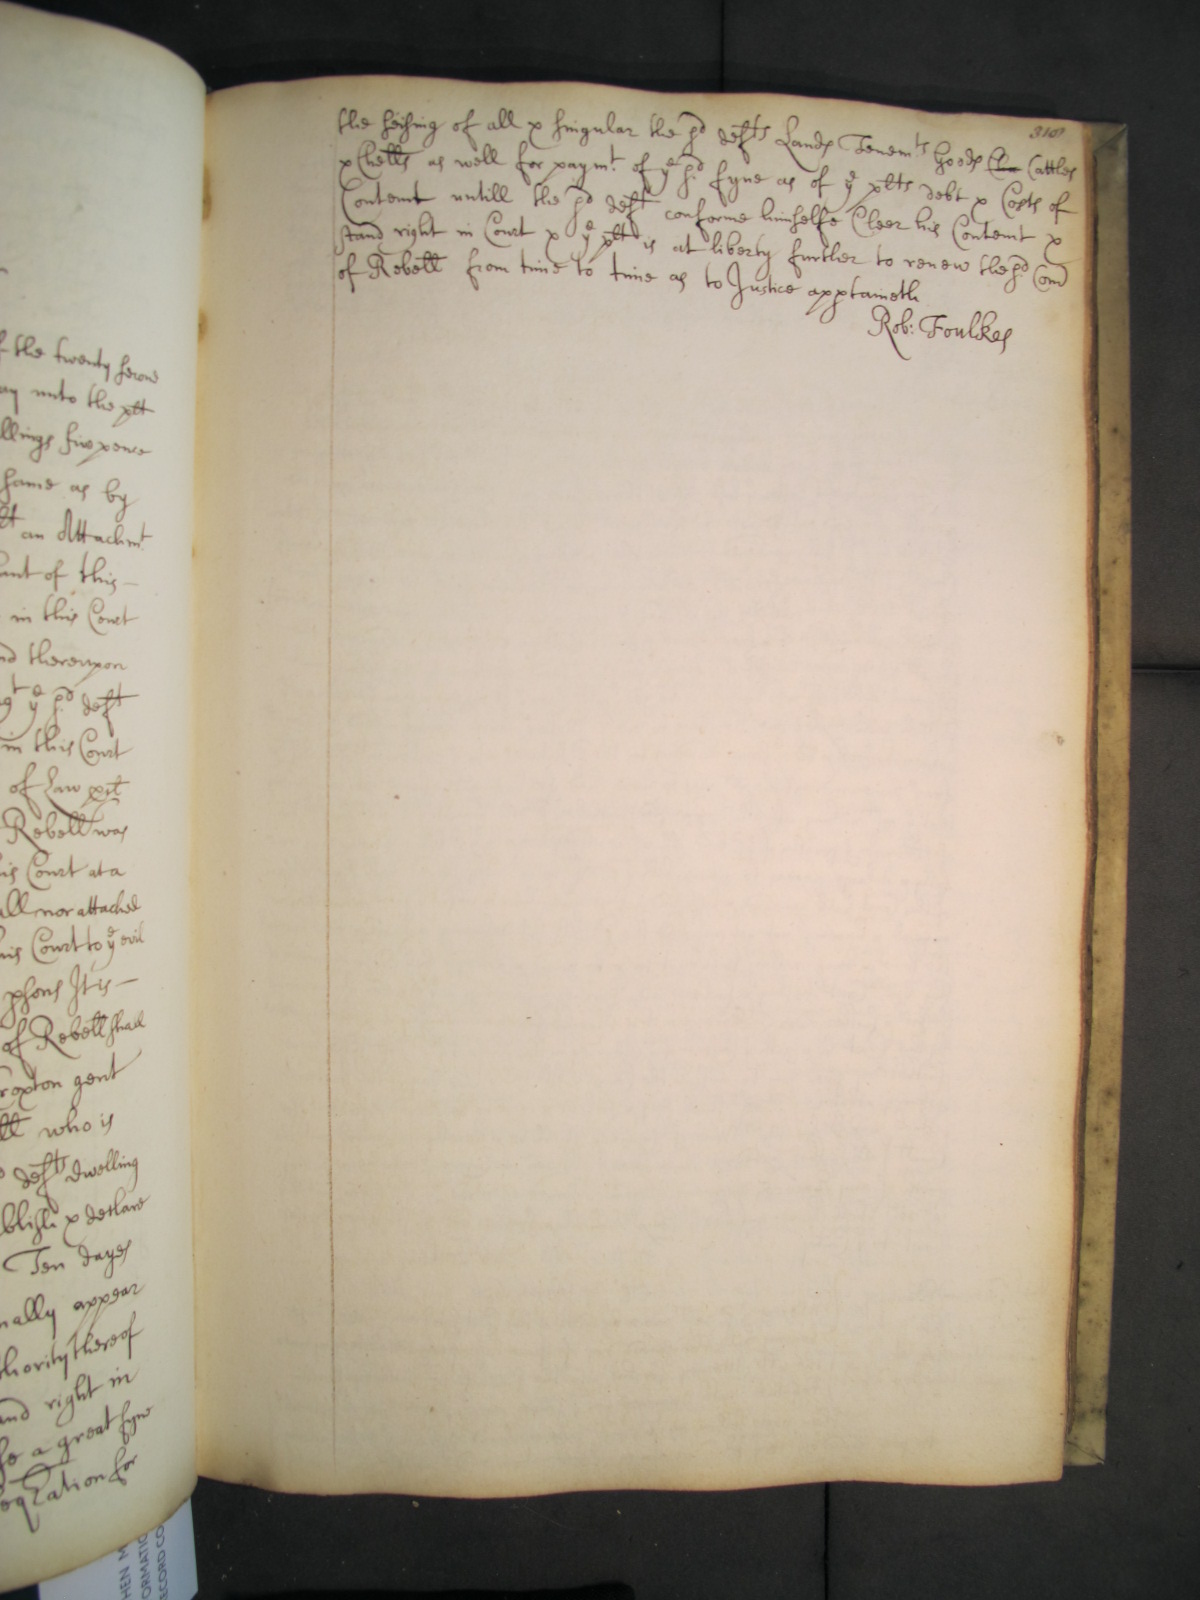 f the twenty second
ay unto the plt
llings five pence
same as by
lt an Attachmt
ant of this —
in this Court
nd thereupon
gt ye sd deft
in this Court
of Law
Rebell was
is Court at a
all nor attached
his Court to ye evil
psons It is —
of Rebell shall
roxton gent
ll who is
defts dwelling
blish & declare
Ten dayes
nally appear
thority thereof
and right in
so a great fyne
for
310
the seising of all & singular the sd defts Lands Tenemts Goods Cha Cattles
& Chells as well for paymt of ye sd fyne as of ye plts debt & Costs of
Contemt untill the sd deft conforme himselfe Cleer his Contemt &
stand right in Court & ye plt is at liberty further to renew the sd Com
of Rebell from time to time as to Justice apptaineth
Rob: Foulkes
HEN M
ORMATIO
RECORD CO